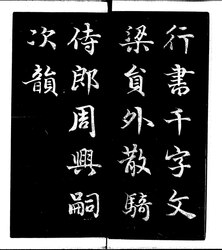 行書千字文
梁貟外散騎
侍郎周興嗣
次韻